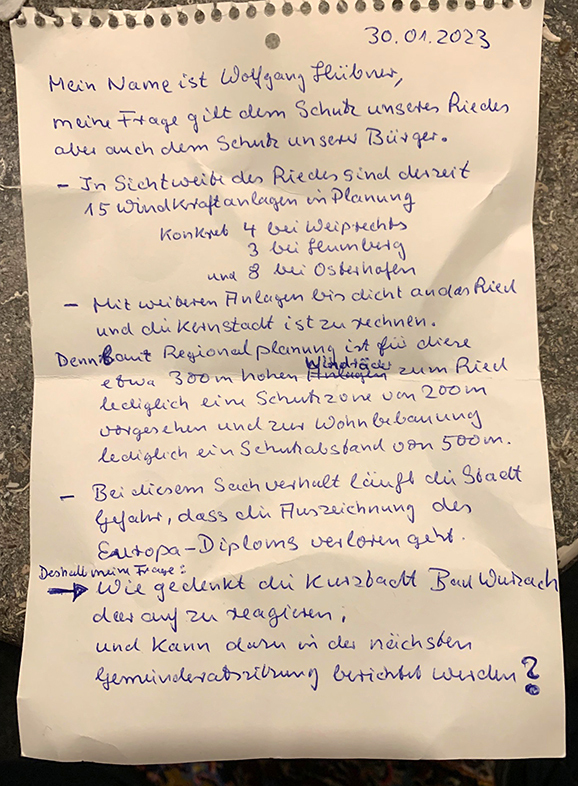 30.01.2023
Mein Name ist Wolfgang Hübner,
meine Frage gilt dem Schutz unseres Riedes
aber auch dem Schutz unserer Bürger.
- In Sichtweite des Riedes sind derzeit
15 Windkraftanlagen in Planung
Konkret 4 bei Weiprechts
3 bei Humberg
und 8 bei Osterhofen
- Mit weiteren Anlagen bis dicht an das Ried
und die Kernstadt ist zu rechnen.
Denn laut Regionalplanung ist für diese
etwa 300m hohen Windräder zum Ried
lediglich eine Schutzzone von 200m
vorgesehen und zur Wohnbebauung
lediglich ein Schutzabstand von 500m.
- Bei diesem Sachverhalt läuft die Stadt
Gefahr, dass die Auszeichnung des
Europa-Diploms verloren geht.
Deshalb meine Frage:
→ Wie gedenkt die Kurstadt Bad Wurzach
darauf zu reagieren,
und kann dazu in der nächsten
Gemeinderatssitzung berichtet werden?